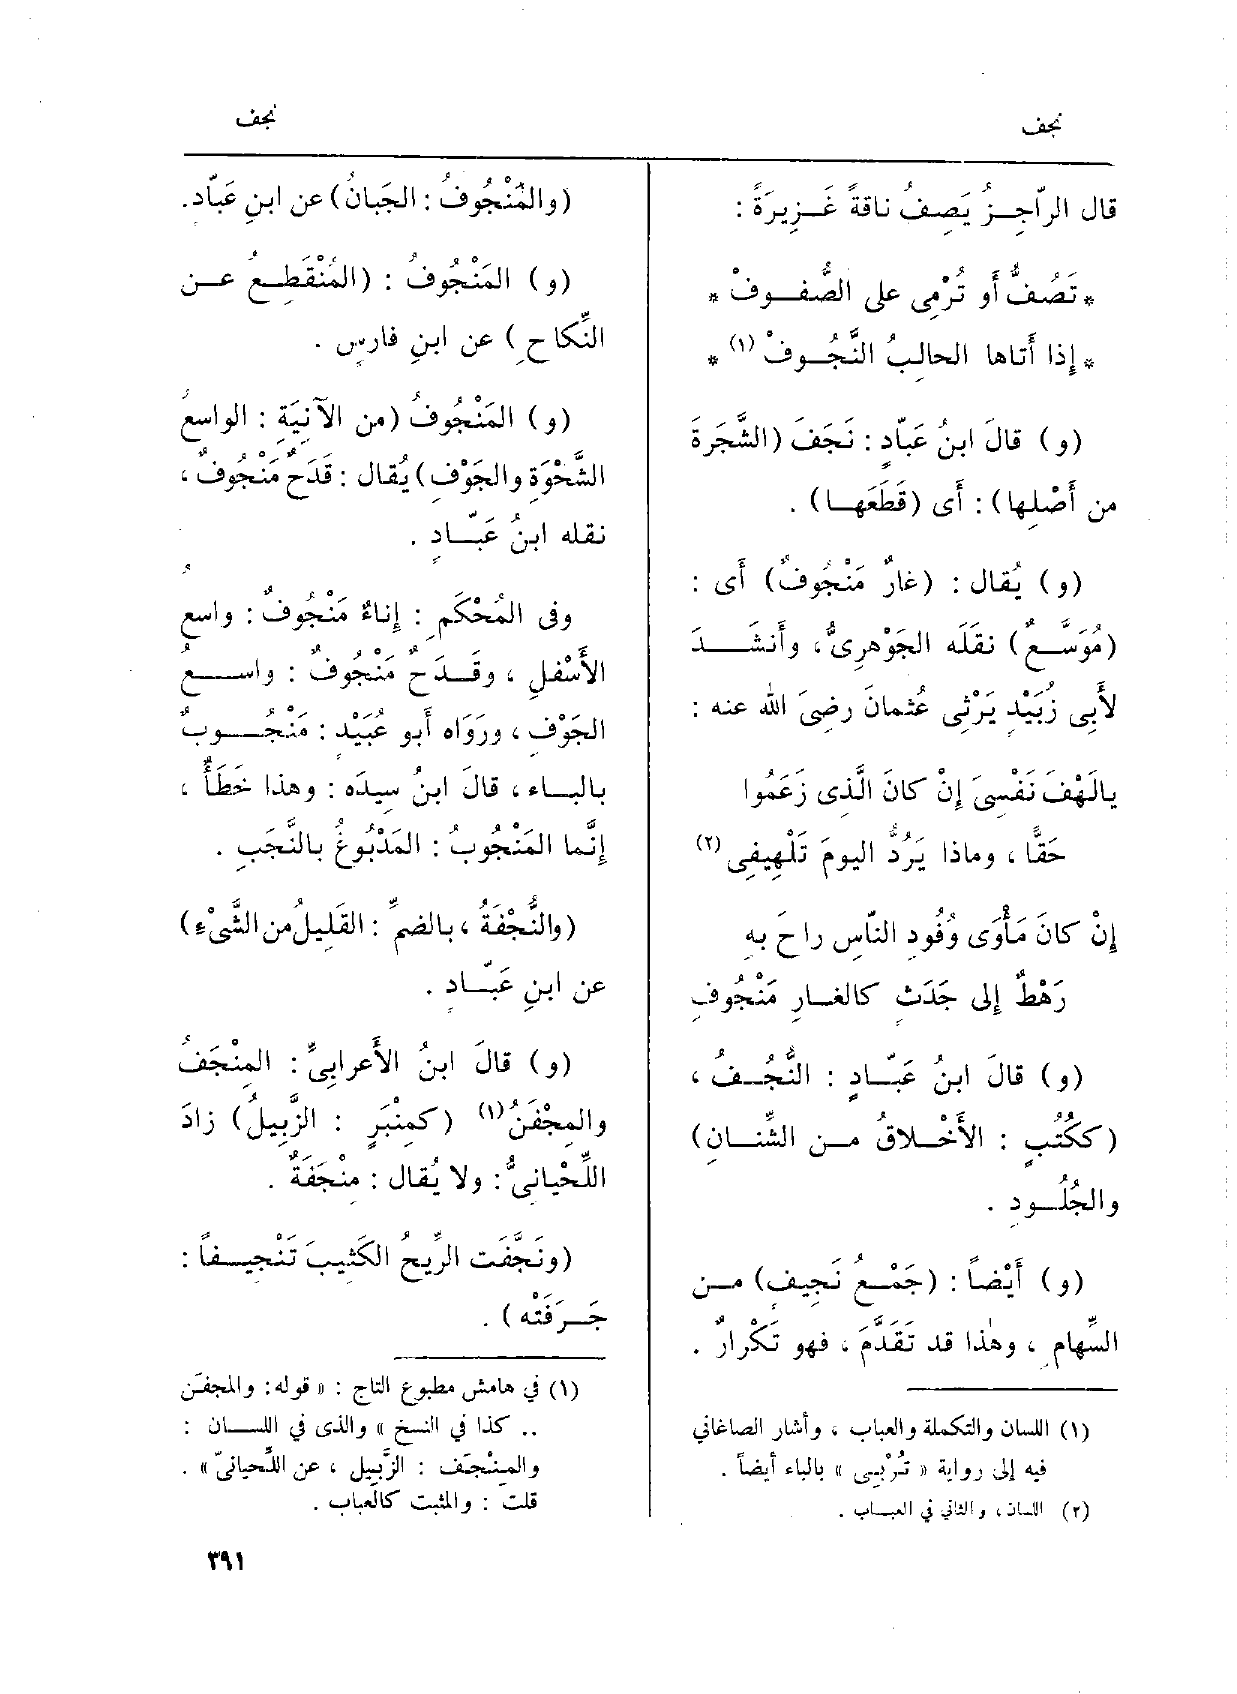 نجف
قال الرّاجِزُ يَصِفُ ناقةً غَزِيرَةً :
* تَصُفُّ أو تُرْمِى على الصُّفوفْ *
* إذا أتاها الحالِبُ النَّجُوفْ (١) *
(و) قالَ ابنُ عَبّادٍ : نَجَفَ (الشَّجَرةَ
من أَصْلِها) : أَى (قَطَعَها) .
(و) يُقال : (غارٌ مَنْجُوفٌ) أَى :
(مُوَسَّعٌ) نقلَه الجَوْهرِىُّ، وأَنشَدَ
لأَبِى زُبَيْدٍ يَرْثِى عُثمانَ رضِىَ الله عنه :
يالَهْفَ نَفْسِىَ إِنْ كانَ الَّذِى زَعَمُوا
حَقًّا ، وماذا يَرُدُّ اليومَ تَلْهِيفِى (٢)
إِنْ كانَ مَأْوَى وُفُودِ النّاسِ راحَ بهِ
رَهْطٌ إلى جَدَثٍ كالغارِ مَنْجُوفِ
(و) قالَ ابنُ عَبّادٍ : النُّجُفُ ،
(ككُتُبٍ : الأَخْلاقُ من الشِّنانِ)
والجُلُودِ .
(و) أَيْضاً : (جَمْعُ نَجِيفٍ) من
السِّهامِ ، وهٰذا قد تَقَدَّمَ ، فهو تَكْرارٌ .
(١) اللسان والتكملة والعباب ، وأشار الصاغاني
فيه إلى رواية « تُرْبِى » بالباء أيضاً .
(٢) اللسان، والثاني في العباب .
نجف
(والمَنْجُوفُ : الجَبانُ) عن ابنِ عَبّاد.
(و) المَنْجُوفُ : (المُنْقَطِعُ عن
النِّكاحِ) عن ابنِ فارِس .
(و) المَنْجُوفُ (من الآنِيَةِ : الواسعُ
الشَّحْوَةِ والجَوْفِ) يُقال : قَدَحٌ مَنْجُوفٌ ،
نقله ابنُ عَبّادٍ .
وفى المُحْكَمِ : إِناءٌ مَنْجُوفٌ : واسعُ
الأَسْفلِ ، وقَدَحٌ مَنْجُوفٌ : واسعُ
الجَوْفِ ، ورَوَاه أَبو عُبَيْدٍ : مَنْجُوبٌ
بالباء ، قالَ ابنُ سِيدَه : وهذا خَطَأٌ ،
إِنَّما المَنْجُوبُ : المَدْبُوغُ بالنَّجَبِ .
(والنُّجْفَةُ ، بالضمِّ : القَلِيلُ من الشَّىْءِ)
عن ابنِ عَبّادٍ .
(و) قالَ ابنُ الأَعرابِىِّ : المِنْجَفُ
والمِجْفَنُ (١) (كمِنْبَرٍ : الزَّبِيلُ) زادَ
اللِّحْيانِىُّ : ولا يُقال : مِنْجَفَةٌ .
(ونَجَّفَت الرِّيحُ الكَثِيبَ تَنْجِيفاً :
جَرَفَتْه) .
(١) في هامش مطبوع التاج : « قوله: والمجفن
.. كذا في النسخ » والذى في اللسان :
والمِنْجَف : الزَّبِيل ، عن اللِّحيانىّ » .
قلت : والمثبت كالعباب .
٣٩١